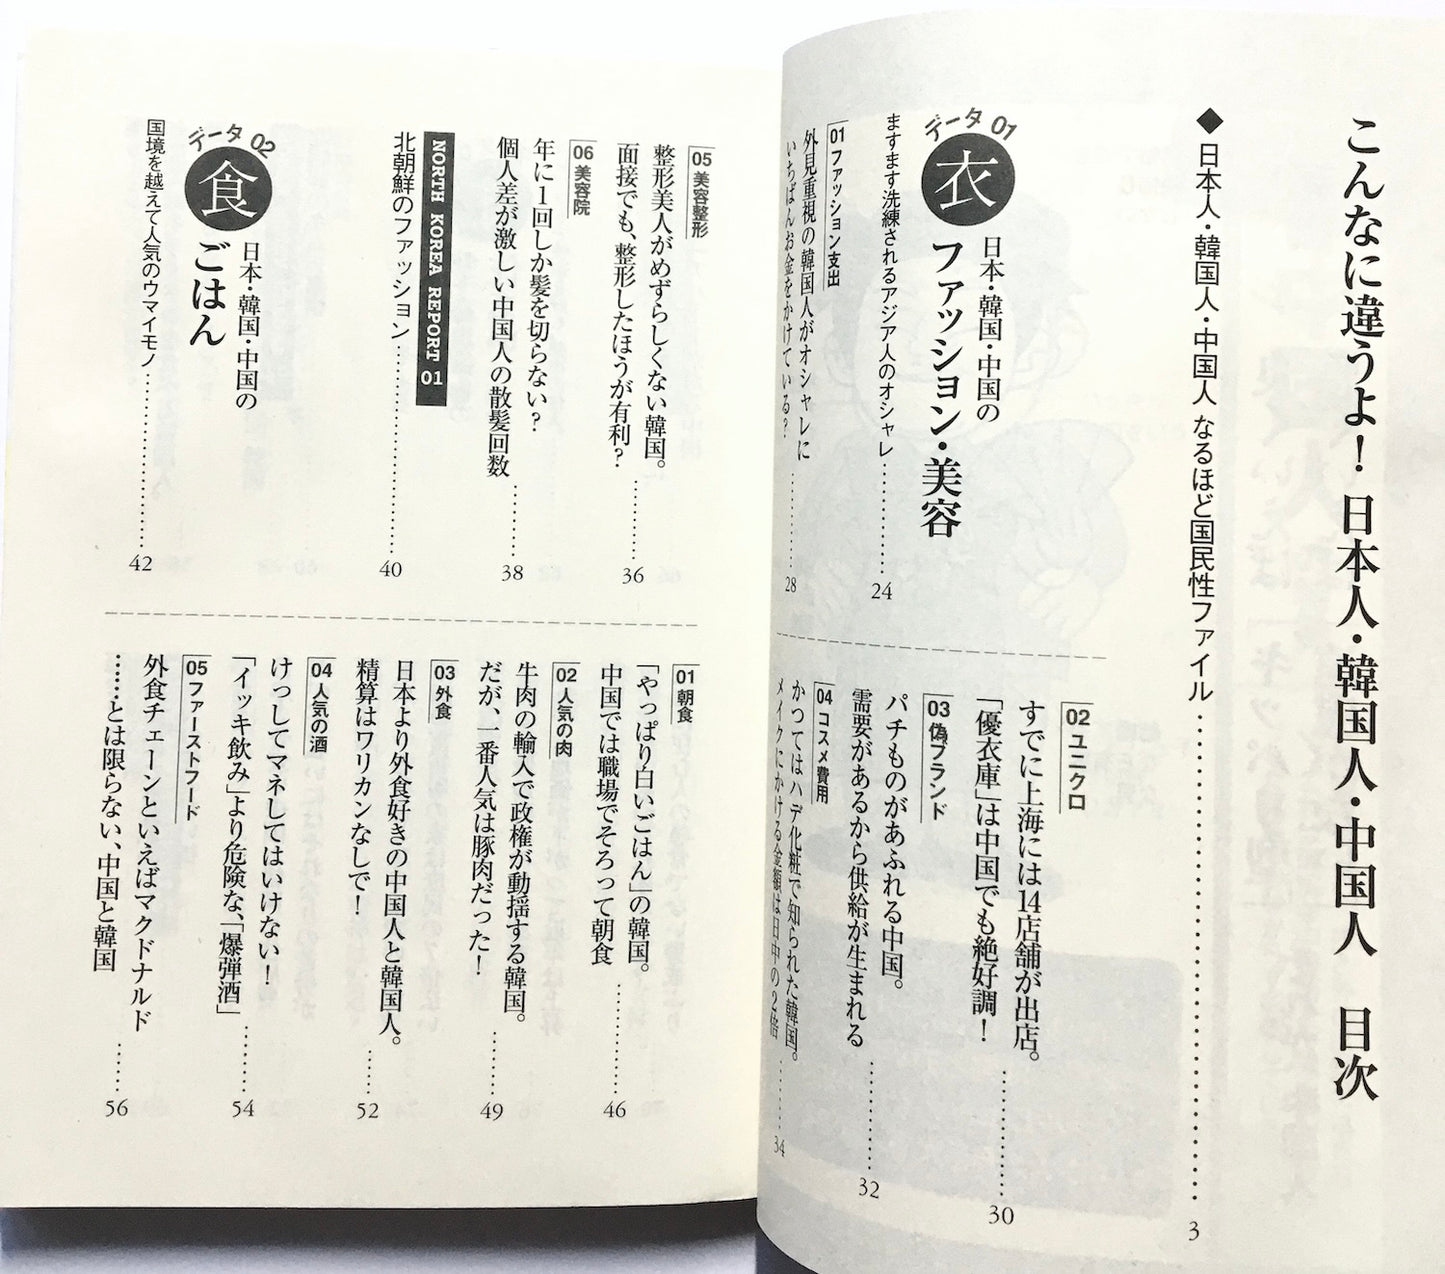 こんなに違うよ！ 日本人・韓国人・中国人　目次
◆日本人・韓国人・中国人 なるほど国民性ファイル…………3
データ01
衣
日本・韓国・中国の
ファッション・美容
ますます洗練されるアジア人のオシャレ…………24
01 ファッション支出
外見重視の韓国人がオシャレに
いちばんお金をかけている？…………28
02 ユニクロ
すでに上海には14店舗が出店。
「優衣庫」は中国でも絶好調！…………30
03 偽ブランド
パチものがあふれる中国。
需要があるから供給が生まれる…………32
04 コスメ費用
かつてはハデ化粧で知られた韓国。
メイクにかける金額は日中の2倍…………34
05 美容整形
整形美人がめずらしくない韓国。
面接でも、整形したほうが有利？…………36
06 美容院
年に1回しか髪を切らない？
個人差が激しい中国人の散髪回数…………38
NORTH KOREA REPORT 01
北朝鮮のファッション…………40
データ02
食
日本・韓国・中国の
ごはん
国境を越えて人気のウマイモノ…………42
01 朝食
「やっぱり白いごはん」の韓国。
中国では職場でそろって朝食…………46
02 人気の肉
牛肉の輸入で政権が動揺する韓国。
だが、一番人気は豚肉だった！…………49
03 外食
日本より外食好きの中国人と韓国人。
精算はワリカンなしで！…………52
04 人気の酒
けっしてマネしてはいけない！
「イッキ飲み」より危険な、「爆弾酒」…………54
05 ファーストフード
外食チェーンといえばマクドナルド
……とは限らない、中国と韓国…………56